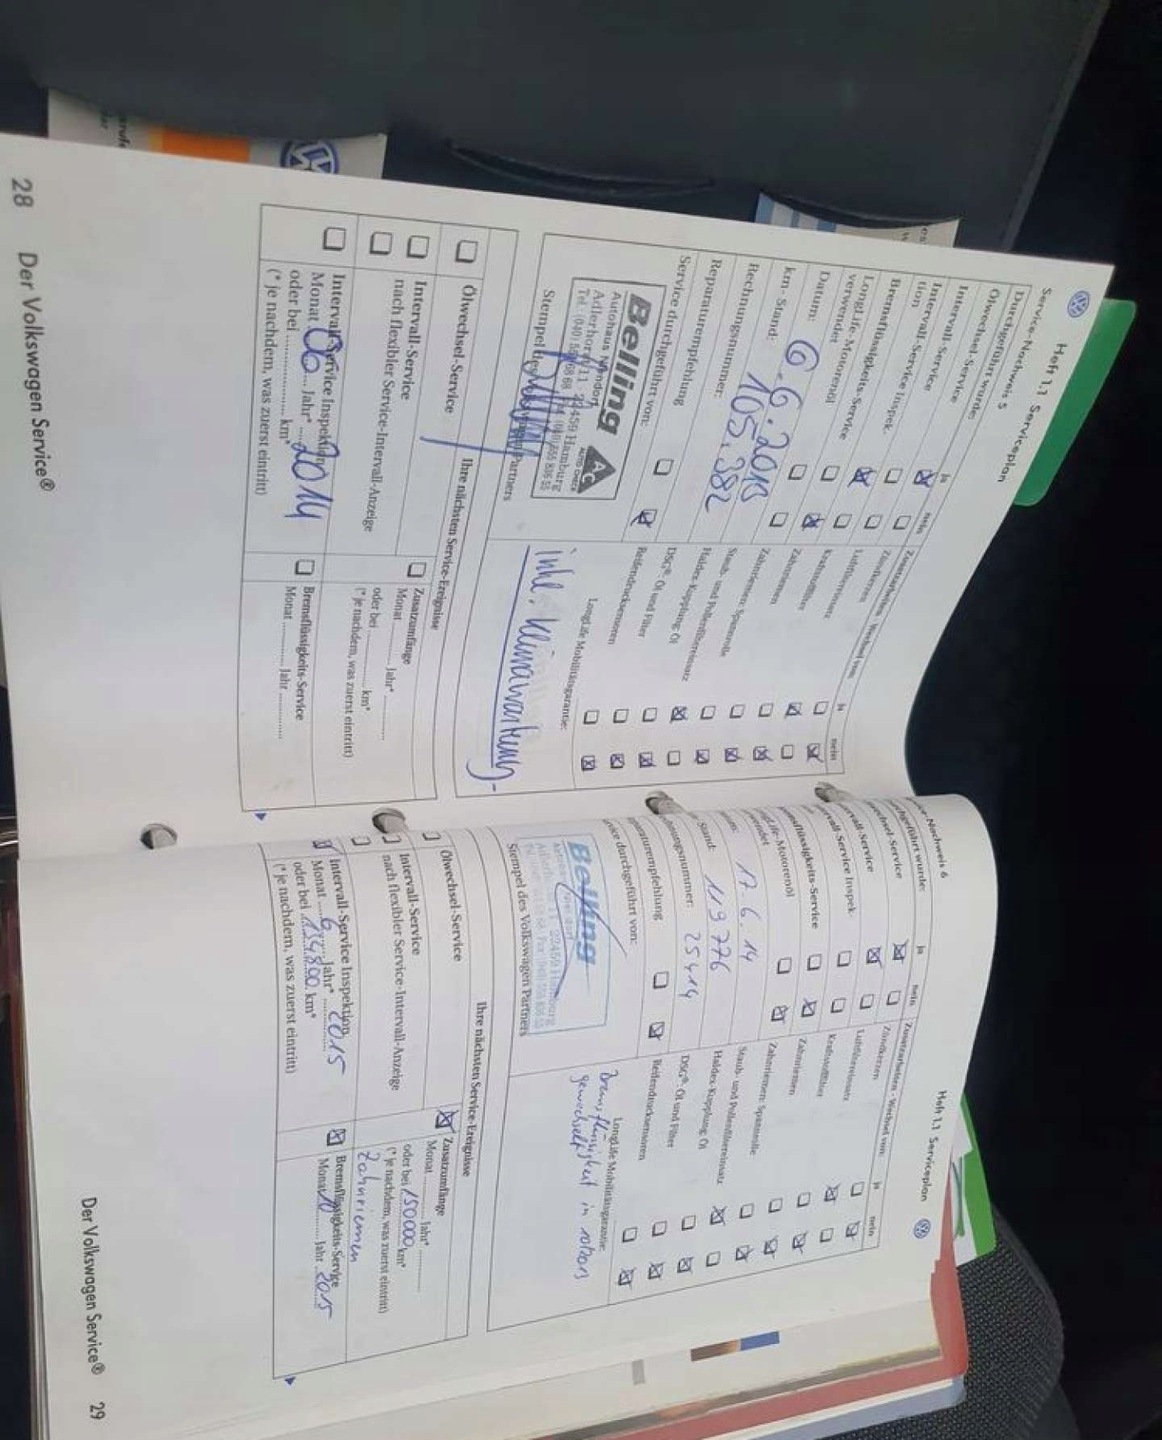 Heft 1.1 Serviceplan
Service-Nachweis 5
Durchgeführt wurde:
ja
nein
Ölwechsel-Service
Intervall-Service
Intervall-Service Inspek-
tion
Bremsflüssigkeits-Service
LongLife-Motorenöl
verwendet
Datum:
6.6.2013
km - Stand:
105.382
Rechnungsnummer:
Reparaturempfehlung
Service durchgeführt von:
Belling
AC
AUTO CHECK
Autohaus Niendorf
Adlerhorst 11 22459 Hamburg
Tel.: (040)
Stempel des Partners
Zusatzarbeiten - Wechsel von:
ja
nein
Zündkerzen
Luftfiltereinsatz
Kraftstofffilter
Zahnriemen
Zahnriemen: Spannrolle
Staub- und Pollenfiltereinsatz
Haldex-Kupplung: Öl
DSG®: Öl und Filter
Reifendrucksensoren
LongLife Mobilitätsgarantie:
inkl. Klimawartung
Ihre nächsten Service-Ereignisse
Ölwechsel-Service
Intervall-Service
nach flexibler Service-Intervall-Anzeige
Intervall-Service Inspektion
Monat 06 Jahr* 2014
oder bei km*
(* je nachdem, was zuerst eintritt)
Zusatzumfänge
Monat Jahr*
oder bei km*
(* je nachdem, was zuerst eintritt)
Bremsflüssigkeits-Service
Monat Jahr
28 Der Volkswagen Service®
Heft 1.1 Serviceplan
Nachweis 6
wurde:
ja
nein
Service
Service
Service Inspek-
Service
Motorenöl
17.6.14
Stand:
119776
nummer:
25414
empfehlung
durchgeführt von:
Belling
22459 Hamburg
Stempel des Volkswagen Partners
Zusatzarbeiten - Wechsel von:
ja
nein
Zündkerzen
Luftfiltereinsatz
Kraftstofffilter
Zahnriemen
Zahnriemen: Spannrolle
Staub- und Pollenfiltereinsatz
Haldex-Kupplung: Öl
DSG®: Öl und Filter
Reifendrucksensoren
LongLife Mobilitätsgarantie:
Bremsflüssigkeit in 10/2013
gewechselt
Ihre nächsten Service-Ereignisse
Ölwechsel-Service
Intervall-Service
nach flexibler Service-Intervall-Anzeige
Intervall-Service Inspektion
Monat 6 Jahr* 2015
oder bei 134800 km*
(* je nachdem, was zuerst eintritt)
Zusatzumfänge
Monat Jahr*
oder bei 150000 km*
(* je nachdem, was zuerst eintritt)
Zahnriemen
Bremsflüssigkeits-Service
Monat 10 Jahr 2015
Der Volkswagen Service® 29